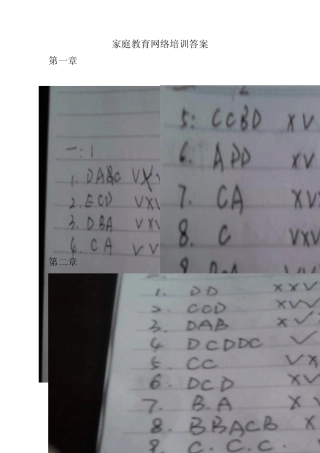 家庭教育网络培训答案
第一章
一: 1
1. DABC V X
2. ECD V X V
3. DBA V X
4. CA V V
5: CCBD X V
6. ADD X V
7. CA X V
8. C V X V
第二章
1. DD X X V
2. CCD X V V
3. DAB X V
4 DCDDC V
5. CC V X
6. DCD X V
7. B.A X V
8. BBACB X
9. C. C. C.